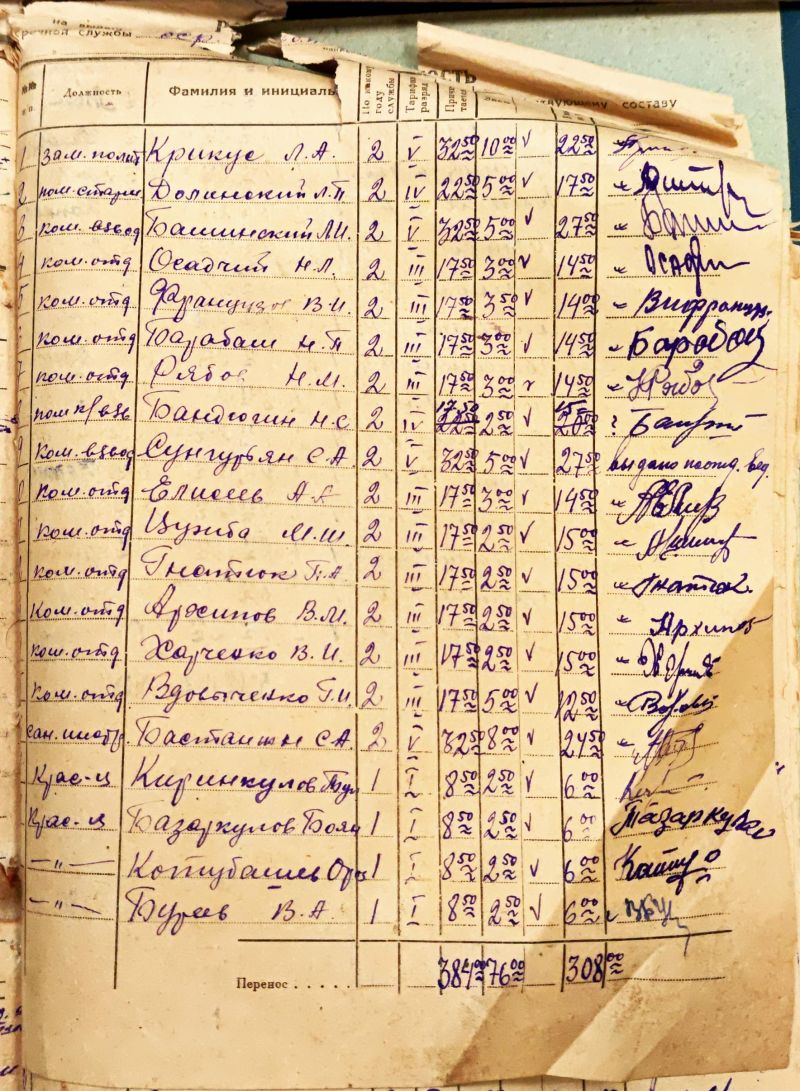 на выдачу
срочной службы
№№ п.п. Должность Фамилия и инициалы По какому году службы Тарифн. разряд составу
1 зам. полит Крикус Л.А. 2 V 32 50 10 00 ✓ 22 50
2 пом. старш Долинский Л.П 2 IV 22 50 5 00 ✓ 17 50 "
3 ком. взвод Башинский Л.И. 2 V 32 50 5 00 ✓ 27 50 "
4 ком. отд Осадчий Н.Л. 2 III 17 50 3 00 ✓ 14 50 "
5 ком. отд Французов В.И. 2 III 17 50 3 50 ✓ 14 00 "
6 ком. отд Барабаш Н.П 2 III 17 50 3 00 ✓ 14 50 "
7 ком. отд Рябов Н.М. 2 III 17 50 3 00 ✓ 14 50 "
8 пом к/взв Бандюгин Н.С 2 IV 17 50 2 50 ✓ 15 ?
9 Ком. взвод Сунгурьян С.А. 2 V 32 50 5 00 ✓ 27 50 выдано по отд. вед.
ком. отд Елисеев А.А 2 III 17 50 3 00 ✓ 14 50 "
ком. отд Цужба М.Ш. 2 III 17 50 2 50 ✓ 15 00 "
ком. отд Гнатюк П.А. 2 III 17 50 2 50 ✓ 15 00 " Гнатюк
Ком. отд Архипов В.М. 2 III 17 50 2 50 ✓ 15 00 " Архипов
ком. отд Харченко В.И. 2 III 17 50 2 50 ✓ 15 00 "
Ком. отд Вдовыченко Г.И. 2 III 17 50 5 00 ✓ 12 50 "
сан. инстр. С.А. 2 V 32 50 8 00 ✓ 24 50 "
Крас-ц Киринкулов 1 I 8 50 2 50 ✓ 6 00
Крас-ц Базаркулов 1 I 8 50 2 50 ✓ 6 00
— " — 1 I 8 50 2 50 ✓ 6 00
— " — Буреев В.А. 1 I 8 50 2 50 ✓ 6 00
Перенос . . . . . 384 00 76 00 308 00